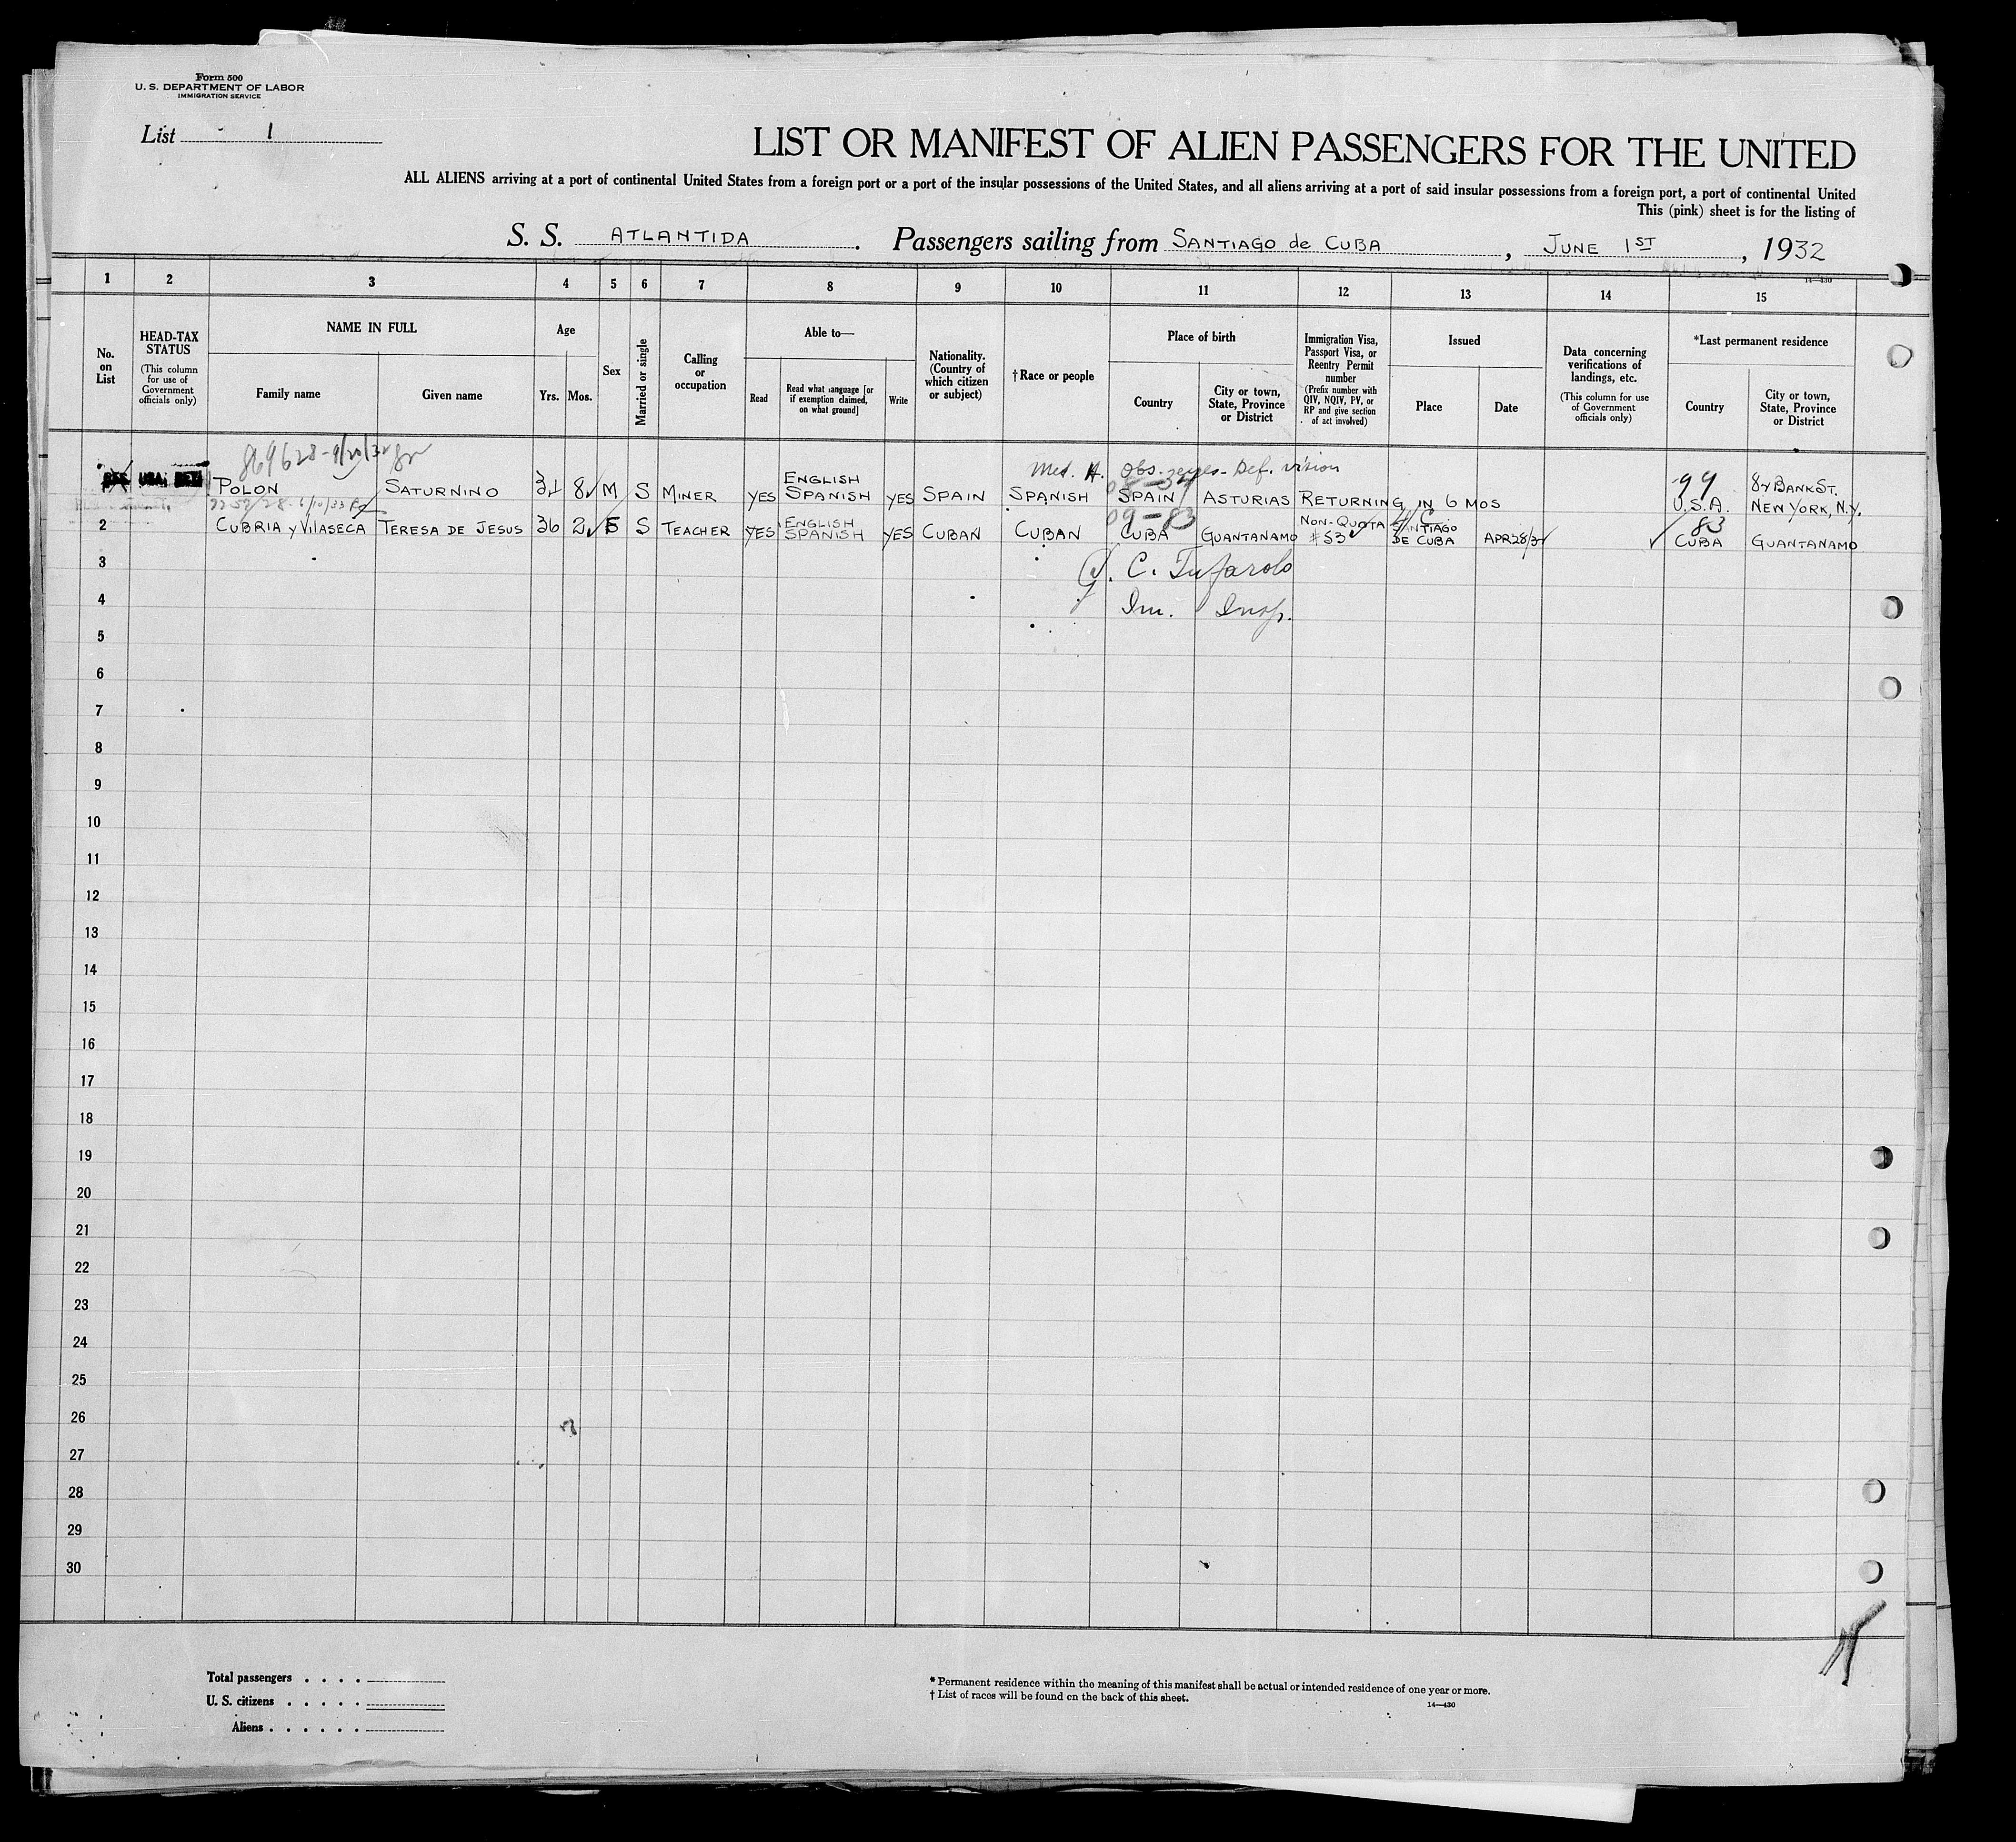 Form 500
U. S. DEPARTMENT OF LABOR
IMMIGRATION SERVICE
List 1
LIST OR MANIFEST OF ALIEN PASSENGERS FOR THE UNITED
ALL ALIENS arriving at a port of continental United States from a foreign port or a port of the insular possessions of the United States, and all aliens arriving at a port of said insular possessions from a foreign port, a port of continental United
This (pink) sheet is for the listing of
S. S. ATLANTIDA. Passengers sailing from SANTIAGO de CUBA, JUNE 1ST, 1932
14—430
1 2 3 4 5 6 7 8 9 10 11 12 13 14 15
No. on List
HEAD-TAX STATUS
(This column for use of Government officials only)
NAME IN FULL
Family name
Given name
Age
Yrs.
Mos.
Sex
Married or single
Calling or occupation
Able to—
Read
Read what language [or if exemption claimed, on what ground]
Write
Nationality. (Country of which citizen or subject)
†Race or people
Place of birth
Country
City or town, State, Province or District
Immigration Visa, Passport Visa, or Reentry Permit number
(Prefix number with QIV, NQIV, PV, or RP and give section of act involved)
Issued
Place
Date
Data concerning verifications of landings, etc.
(This column for use of Government officials only)
*Last permanent residence
Country
City or town, State, Province or District
869628-9/20/32
Med. A. Obs. - Def. vision
USA
POLON SATURNINO 8 M S MINER YES ENGLISH SPANISH YES SPAIN SPANISH SPAIN ASTURIAS RETURNING IN 6 MOS 99 U.S.A. BANK ST. NEW YORK, N.Y.
2 CUBRIA y VILASECA TERESA DE JESUS 36 2 F S TEACHER YES ENGLISH SPANISH YES CUBAN CUBAN 09-83 CUBA GUANTANAMO NON-QUOTA #53 SANTIAGO DE CUBA APR 28/32 83 CUBA GUANTANAMO
3
C. Tufarolo
4
Im. Insp.
5
6
7
8
9
10
11
12
13
14
15
16
17
18
19
20
21
22
23
24
25
26
27
28
29
30
Total passengers . . . .
U. S. citizens . . . . .
Aliens . . . . . .
* Permanent residence within the meaning of this manifest shall be actual or intended residence of one year or more.
† List of races will be found on the back of this sheet.
14—430